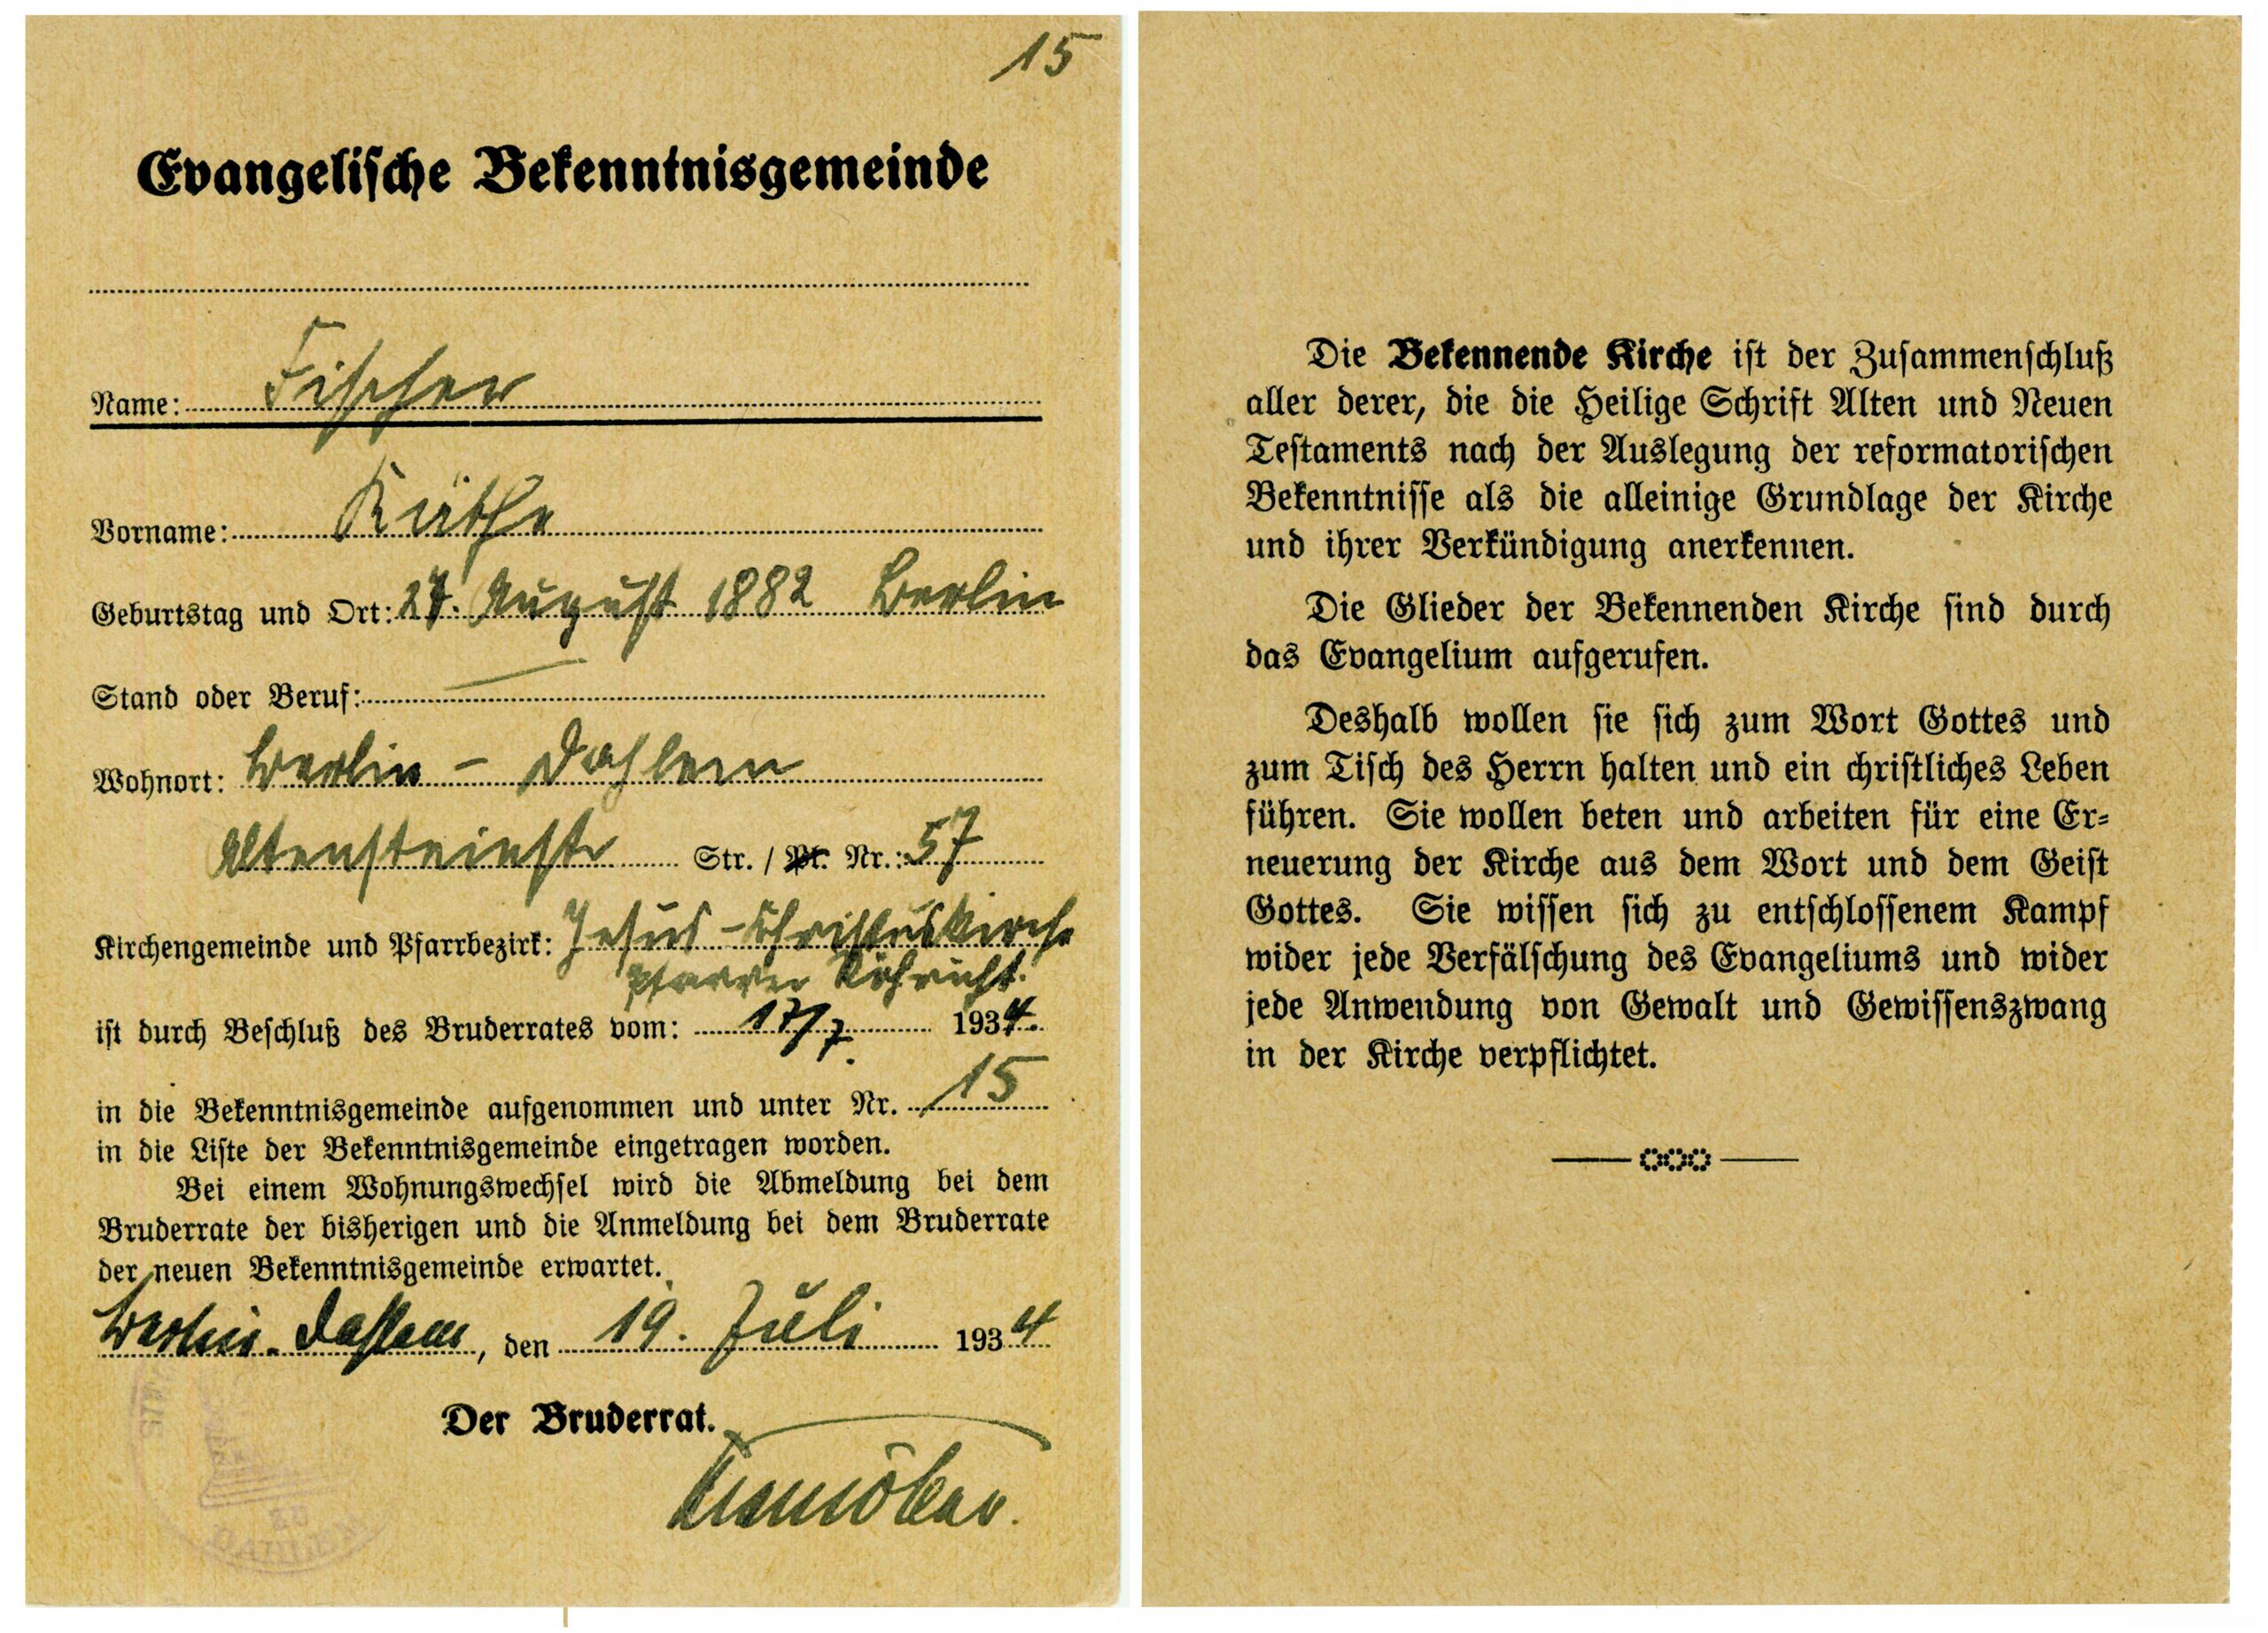 15
Evangelische Bekenntnisgemeinde
Name: Fischer
Vorname: Käthe
Geburtstag und Ort: 27. August 1882 Berlin
Stand oder Beruf: —
Wohnort: Berlin - Dahlem
Altensteinstr Str. / Pl. Nr.: 57
Kirchengemeinde und Pfarrbezirk: Jesus-Christuskirche
Pfarrer Röhricht.
ist durch Beschluß des Bruderrates vom: 17/7. 1934.
in die Bekenntnisgemeinde aufgenommen und unter Nr. 15
in die Liste der Bekenntnisgemeinde eingetragen worden.
Bei einem Wohnungswechsel wird die Abmeldung bei dem
Bruderrate der bisherigen und die Anmeldung bei dem Bruderrate
der neuen Bekenntnisgemeinde erwartet.
Berlin-Dahlem, den 19. Juli 1934
Der Bruderrat.
ZU
DAHLEM
Die Bekennende Kirche ist der Zusammenschluß
aller derer, die die Heilige Schrift Alten und Neuen
Testaments nach der Auslegung der reformatorischen
Bekenntnisse als die alleinige Grundlage der Kirche
und ihrer Verkündigung anerkennen.
Die Glieder der Bekennenden Kirche sind durch
das Evangelium aufgerufen.
Deshalb wollen sie sich zum Wort Gottes und
zum Tisch des Herrn halten und ein christliches Leben
führen. Sie wollen beten und arbeiten für eine Er-
neuerung der Kirche aus dem Wort und dem Geist
Gottes. Sie wissen sich zu entschlossenem Kampf
wider jede Verfälschung des Evangeliums und wider
jede Anwendung von Gewalt und Gewissenszwang
in der Kirche verpflichtet.